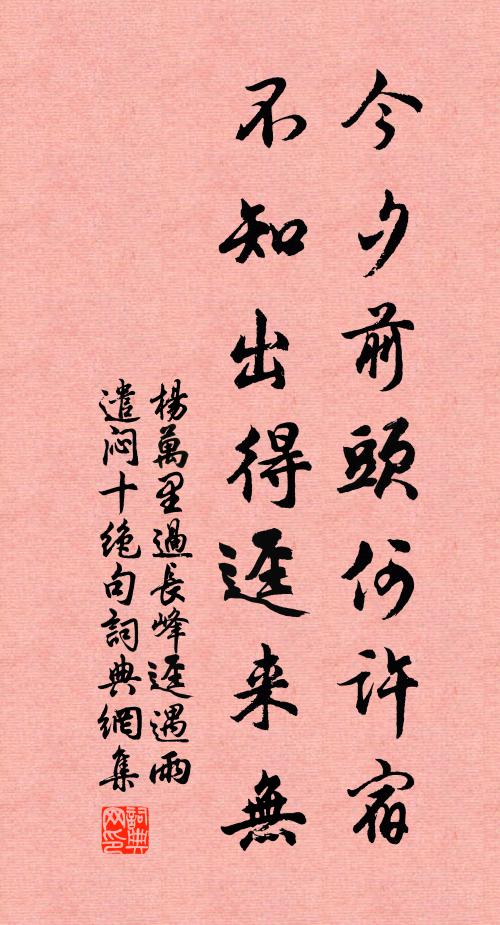 今夕前頭何許宿
不知出得逕来無
楊萬里過長峰逕遇雨
遣闷十絶句詞典網集
詞典网印